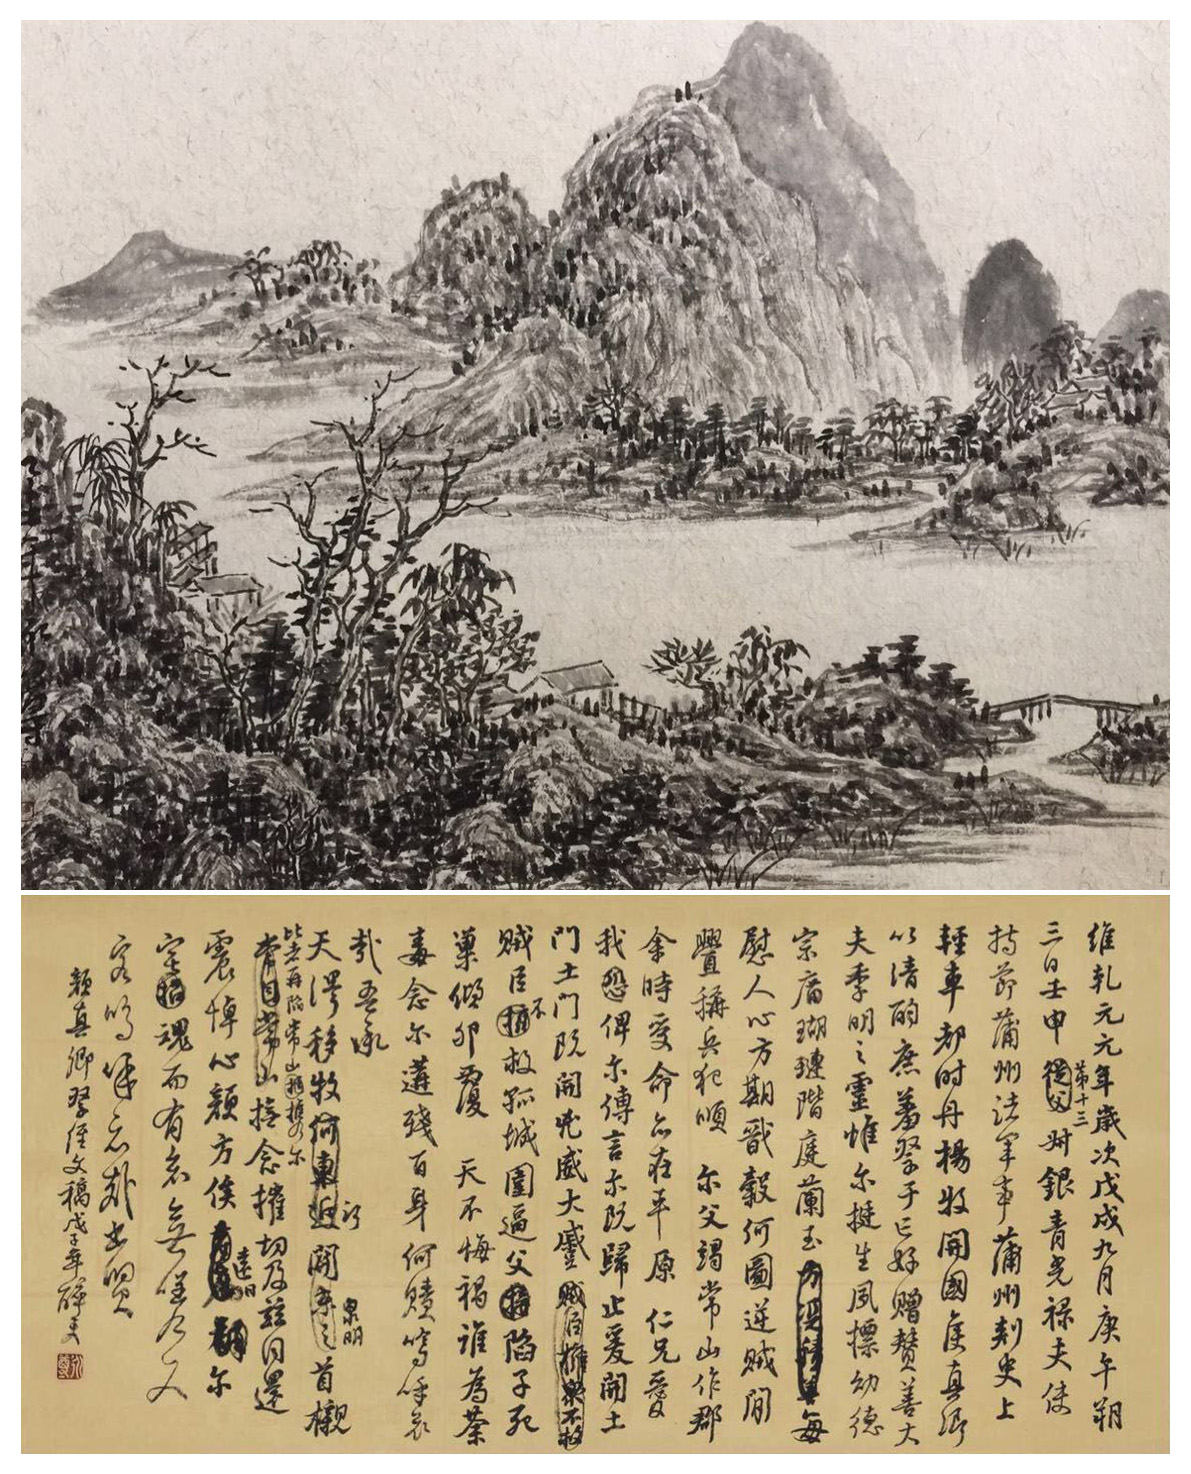 維乾元元年歲次戊戌九月庚午朔
三日壬申第十三叔銀青光禄夫使
持節蒲州諸軍事蒲州刺史上
輕車都尉丹楊牧開國侯真卿
以清酌庶羞祭于亡姪贈贊善大
夫季明之靈惟爾挺生夙標幼德
宗廟瑚璉階庭蘭玉每
慰人心方期戩穀何圖逆賊間
釁稱兵犯順 爾父竭常山作郡
余時受命亦在平原 仁兄愛
我恐俾爾傳言爾既歸止爰開土
門土門既開兇威大蹙賊臣擁衆不救
賊臣不救孤城圍逼父陷子死
巢傾卵覆 天不悔禍誰為荼
毒念爾遘殘百身何贖嗚呼哀
哉吾承
天澤移牧河東近河關泉明首櫬
比者再陷常山攜爾
亦自常山撫念摧切及茲同還
震悼心顏方俟遠日爾
宅魂而有知無嗟久
客嗚呼哀哉尚饗
顏真卿祭侄文稿戊子年